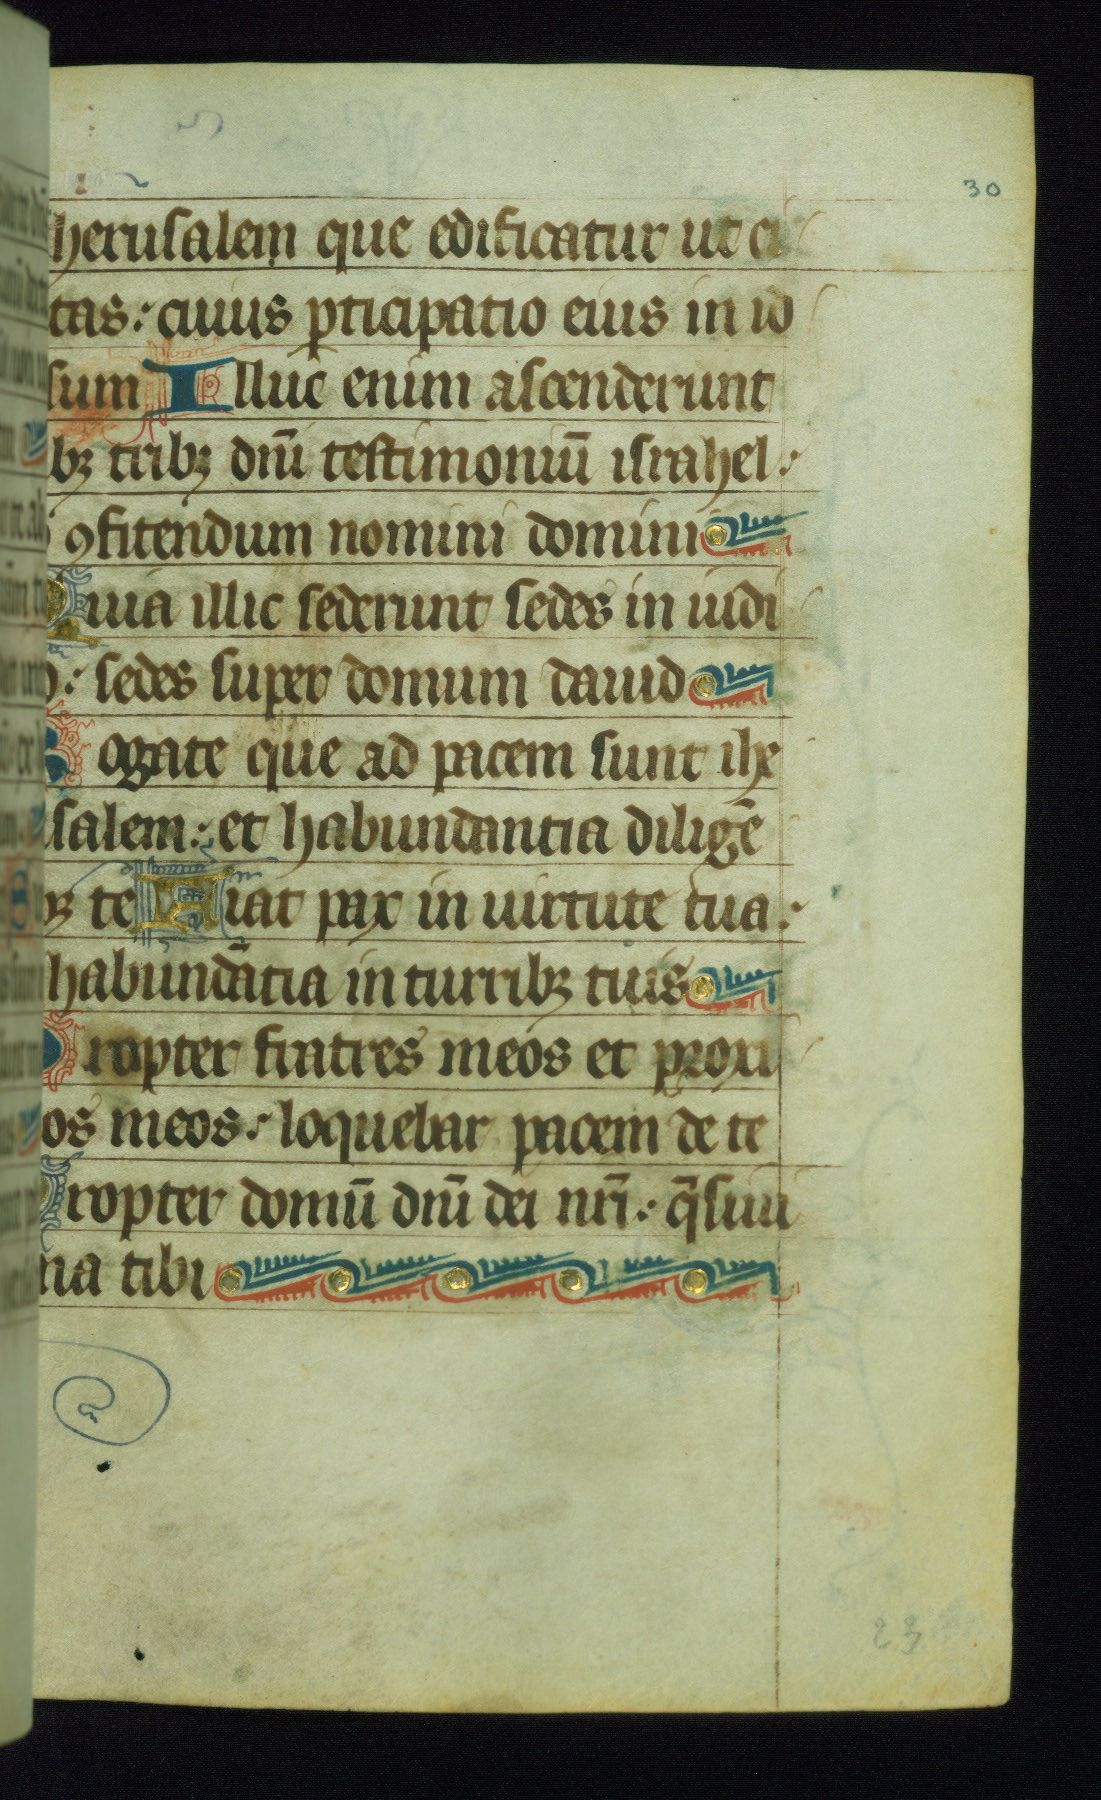 30
herusalem que edificatur ut ci
tas: cuius pticipatio eius in id
sum Illuc enim ascenderunt
bꝫ tribꝫ dñi testimoniū israhel:
ꝯfitendum nomini domini
Quia illic sederunt sedes in iudi
: sedes super domum dauid
Rogate que ad pacem sunt ihe
salem: et habundantia diligē
bꝫ te Fiat pax in uirtute tua:
habundātia in turribꝫ tuis
Propter fratres meos et proxi
os meos: loquebar pacem de te
Propter domū dñi dei nr̄i: q̄siui
na tibi
23